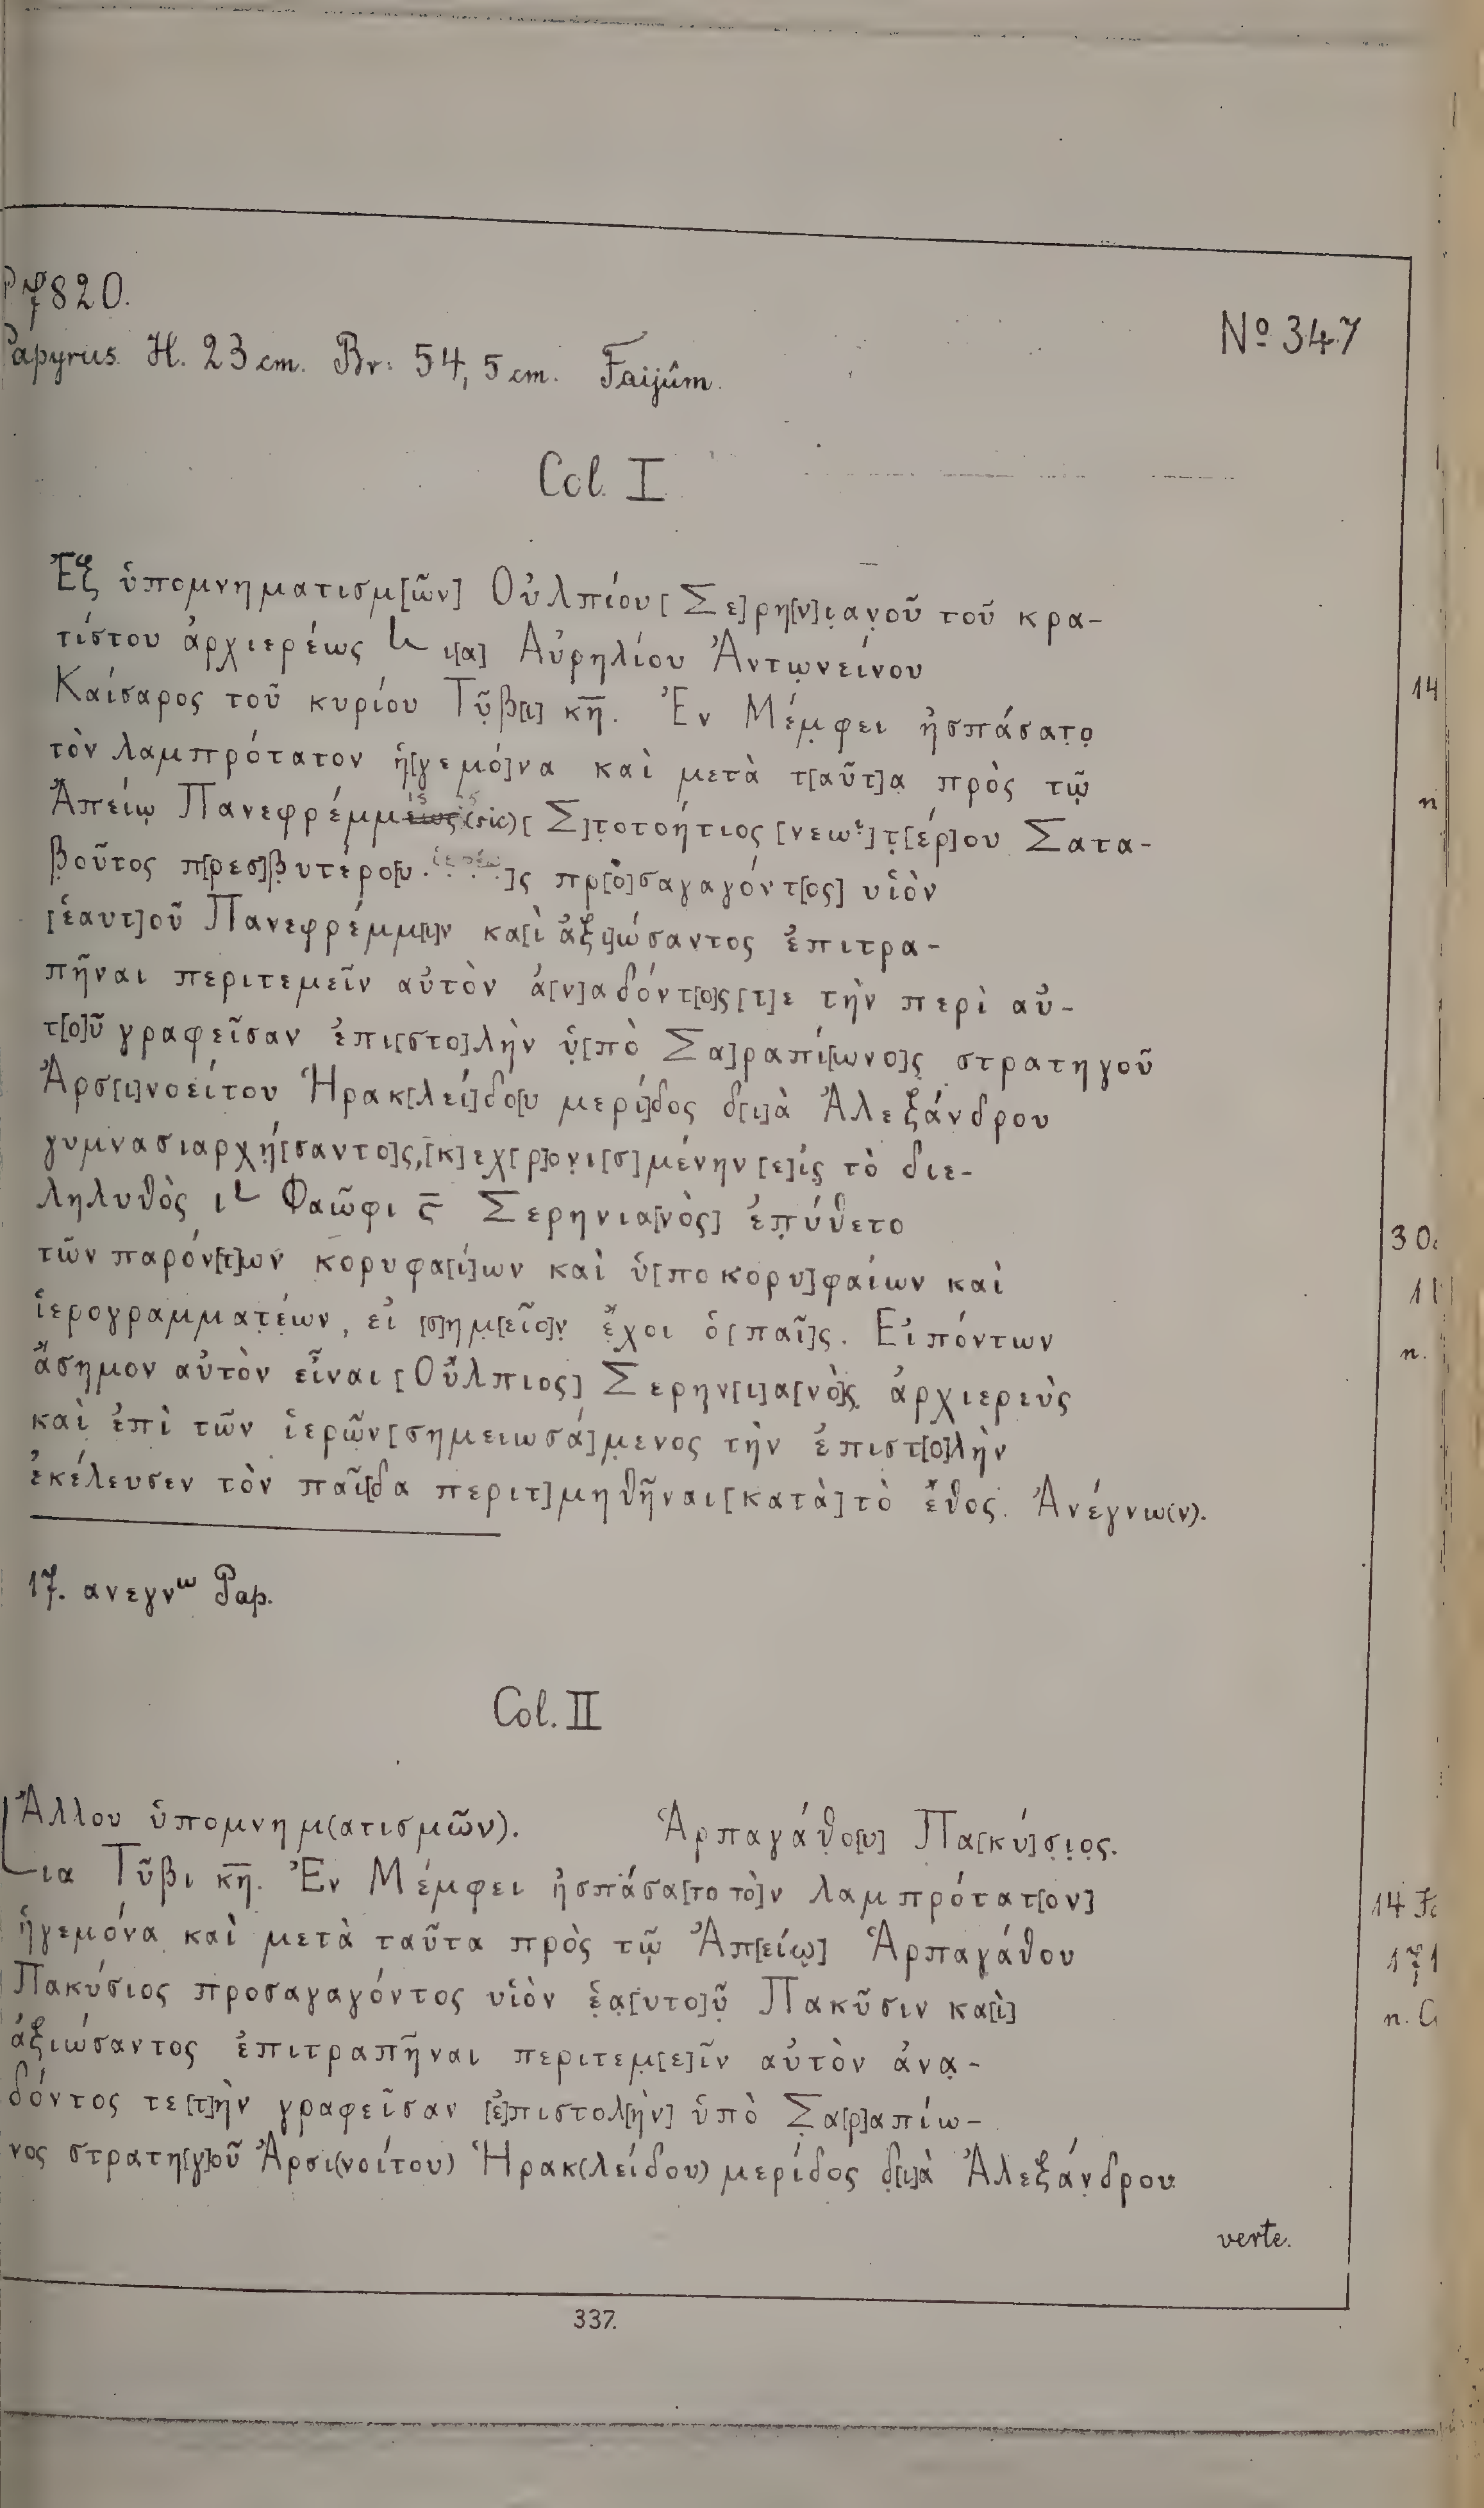 P 7820.
Nº 347
Papyrus. H. 23 cm. Br. 54,5 cm. Faijûm.
Col. I
Ἐξ ὑπομνηματισμ[ῶν] Οὐλπίου [Σε]ρη[ν]ιανοῦ τοῦ κρα-
τίστου ἀρχιερέως 𐅹 ι[α] Αὐρηλίου Ἀντωνείνου
Καίσαρος τοῦ κυρίου Τῦβ[ι] κ̅η̅. Ἐν Μέμφει ἠσπάσατο
τὸν λαμπρότατον ἡ[γεμό]να καὶ μετὰ τ[αῦτ]α πρὸς τῷ
Ἀπείῳ Πανεφρέμμ (sic) [Σ]τοτοήτιος [νεω]τ[έρ]ου Σατα-
βοῦτος π[ρεσ]βυτέρο[υ ]ς πρ[ο]σαγαγόντ[ος] υἱὸν
[ἑαυτ]οῦ Πανεφρέμμ[ι]ν κα[ὶ ἀξι]ώσαντος ἐπιτρα-
πῆναι περιτεμεῖν αὐτὸν ἀ[ν]αδόντ[ο]ς [τ]ε τὴν περὶ αὐ-
τ[ο]ῦ γραφεῖσαν ἐπι[στο]λὴν ὑ[πὸ Σα]ραπί[ωνο]ς στρατηγοῦ
Ἀρσ[ι]νοείτου Ἡρακ[λεί]δο[υ μερί]δος δ[ι]ὰ Ἀλεξάνδρου
γυμνασιαρχή[σαντο]ς, [κ]εχ[ρ]ονι[σ]μένην [ε]ἰς τὸ διε-
ληλυθὸς ι𐅹 Φαῶφι ς̅ Σερηνια[νὸς] ἐπύθετο
τῶν παρόν[τ]ων κορυφα[ί]ων καὶ ὑ[ποκορυ]φαίων καὶ
ἱερογραμματέων, εἰ [σ]ημ[εῖο]ν ἔχοι ὁ [παῖ]ς. Εἰπόντων
ἄσημον αὐτὸν εἶναι [Οὔλπιος] Σερην[ι]α[νὸ]ς ἀρχιερεὺς
καὶ ἐπὶ τῶν ἱερῶν [σημειωσά]μενος τὴν ἐπιστ[ο]λὴν
ἐκέλευσεν τὸν παῖ[δα περιτ]μηθῆναι [κατὰ] τὸ ἔθος. Ἀνέγνω(ν).
17. ανεγνʷ Pap.
Col. II
Ἄλλου ὑπομνημ(ατισμῶν). Ἁρπαγάθο[υ] Πα[κύ]σιος.
𐅹ια Τῦβι κ̅η̅. Ἐν Μέμφει ἠσπάσα[το τὸ]ν λαμπρότατ[ον]
ἡγεμόνα καὶ μετὰ ταῦτα πρὸς τῷ Ἀπ[είῳ] Ἁρπαγάθου
Πακύσιος προσαγαγόντος υἱὸν ἑα[υτο]ῦ Πακῦσιν κα[ὶ]
ἀξιώσαντος ἐπιτραπῆναι περιτεμ[ε]ῖν αὐτὸν ἀνα-
δόντος τε [τ]ὴν γραφεῖσαν [ἐ]πιστολ[ὴν] ὑπὸ Σα[ρ]απίω-
νος στρατη[γ]οῦ Ἀρσι(νοίτου) Ἡρακ(λείδου) μερίδος δ[ι]ὰ Ἀλεξάνδρου
verte.
337.